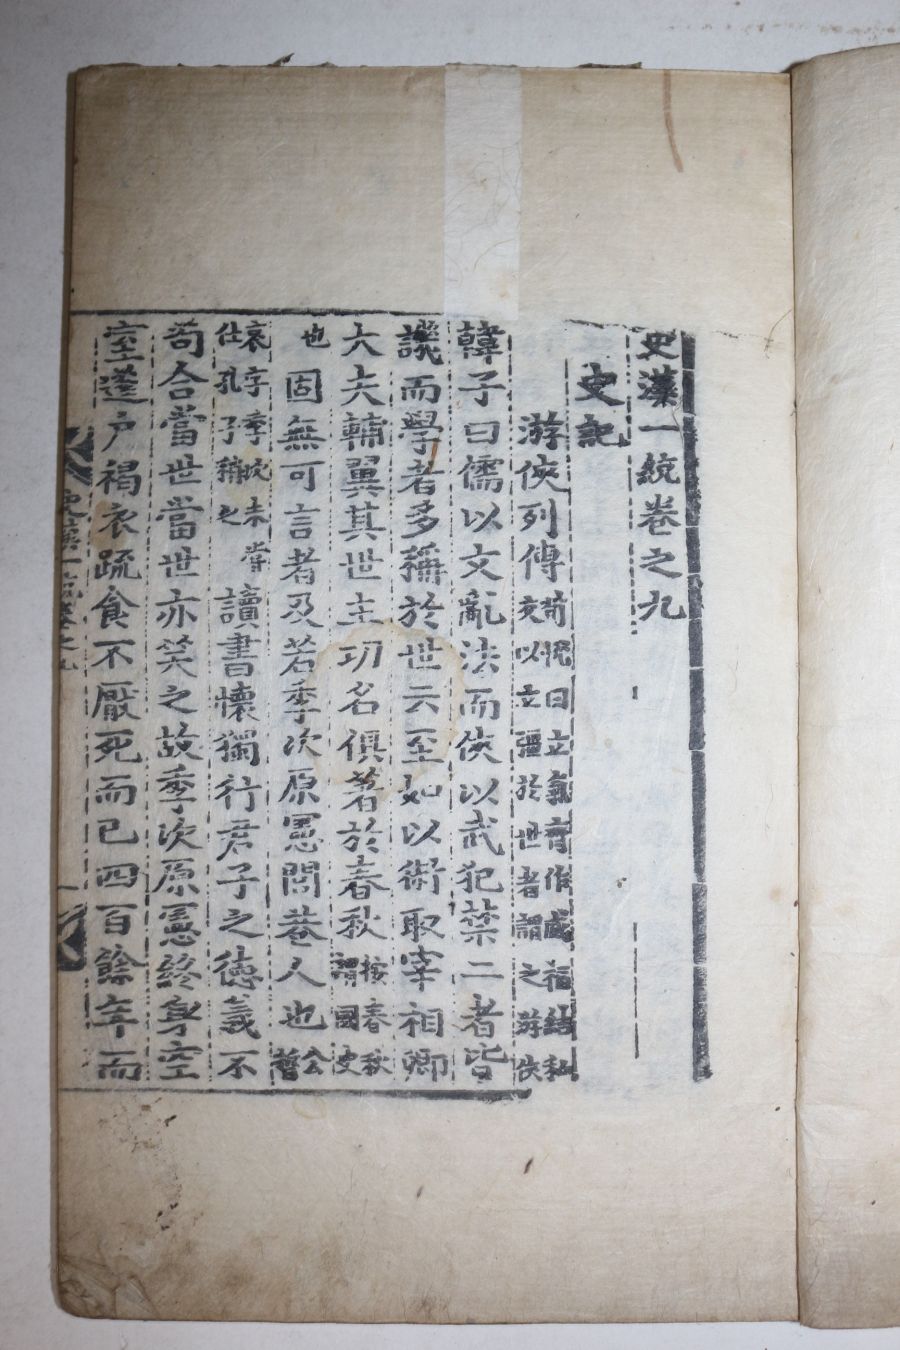 史漢一統卷之九
史記
游俠列傳 荀悅曰立氣齊作威福結私交以立彊於世者謂之游俠
韓子曰儒以文亂法而俠以武犯禁二者皆
譏而學者多稱於世云至如以術取宰相卿
大夫輔翼其世主功名俱著於春秋 按春秋謂國史
也 固無可言者及若季次原憲閭巷人也 公皙
哀字季次未嘗仕孔子稱之 讀書懷獨行君子之德義不
苟合當世當世亦笑之故季次原憲終身空
室蓬戶褐衣疏食不厭死而已四百餘年而
史漢一統卷之九
一